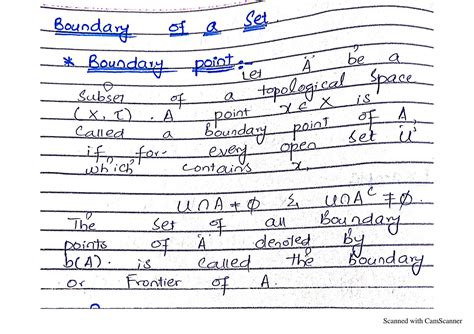 Boundary of a Set
* Boundary point:-
Let 'A' be a
Subset of a topological Space
(X, τ). A point x ∈ X is
Called a boundary point of A,
if for every open set 'U'
which contains x,
U∩A ≠ ϕ & U∩Aᶜ ≠ ϕ.
The set of all Boundary
points of 'A' denoted by
b(A). is called the Boundary
or Frontier of A.
Scanned with CamScanner